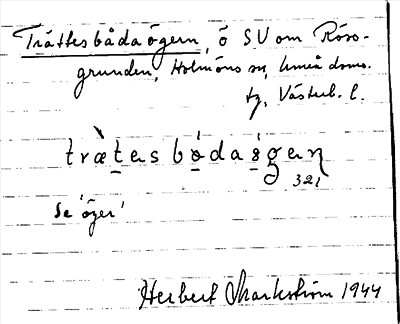 Trättesbådaögern, ö SV om Rösö-
grunden, Holmöns sn, Umeå doms.
tg, Västerb. l.
trætes bådaögerɳ
321
se 'öger'
Herbert Markström 1944